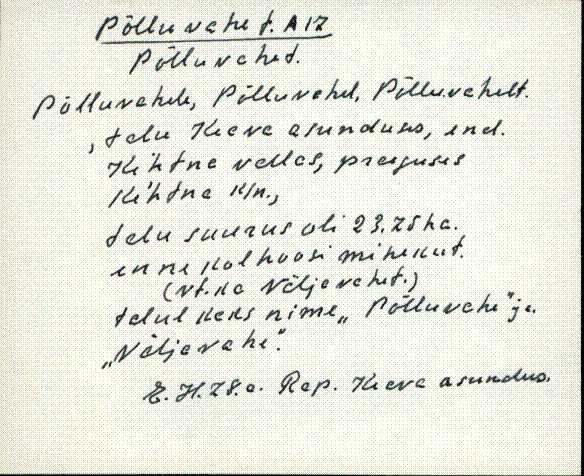 Põlluvahe t. A 17
Põlluvahet.
Põlluvahele, Põlluvahel, Põlluvahelt.
, talu Keava asunduses, end.
Kehtna vallas, praeguses
Kehtna k/n.,
talu suurus oli 23.78 ha.
enne kolhoosi minekut.
(vt. ka Väljavahet.)
talul kaks nime „Põlluvahe" ja
„Väljavahe".
E. H. 78. a. Rap. Keava asundus.